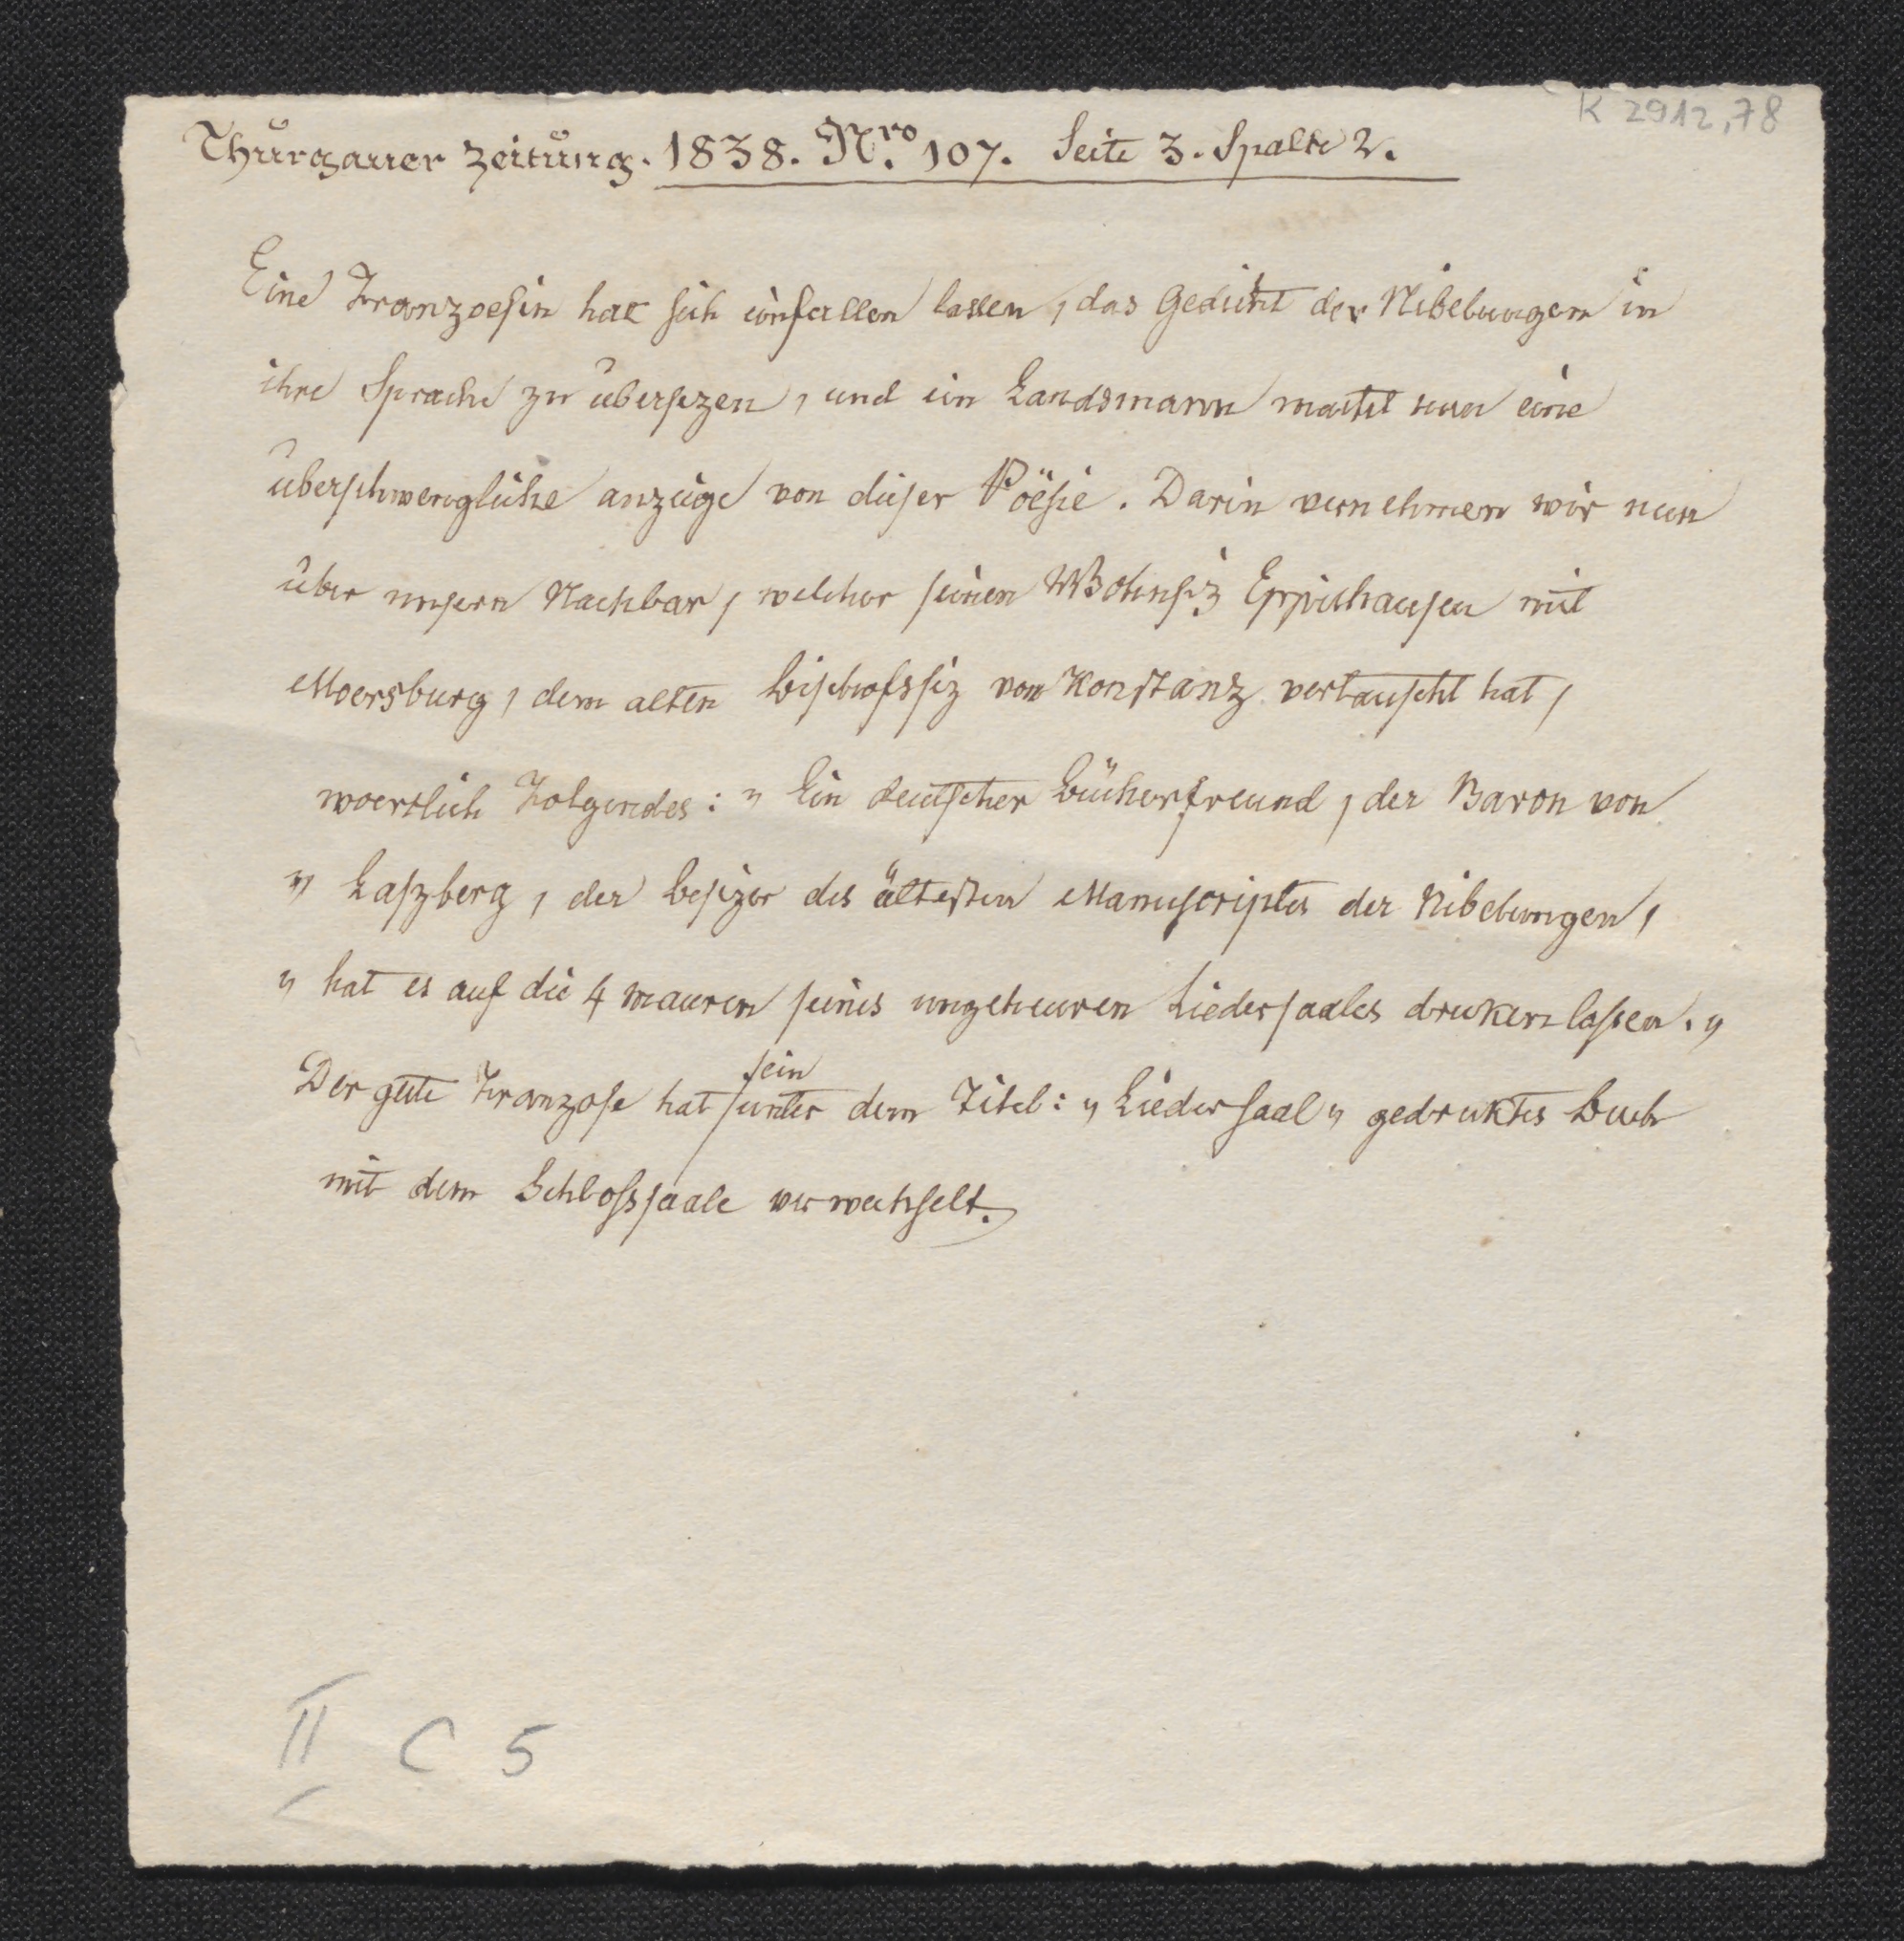 K 2912,78
Thurgauer Zeitung. 1838. Nro. 107. Seite 3. Spalte 2.
Eine Franzoesin hat sich einfallen lassen, das Gedicht der Nibelungen in
ihre Sprache zu übersezen, und ein Landsmann macht nun eine
überschwengliche anzeige von dieser Poësie. Darin vernehmen wir nun
über unsern Nachbar, welcher seinen Wohnsiz Eppishausen mit
Moersburg, dem alten Bischofssiz von Konstanz vertauscht hat,
woertlich Folgendes: „ Ein deutscher Bücherfreund, der Baron von
„ Laszberg, der besizer des ältesten Manuscriptes der Nibelungen,
„ hat es auf die 4 mauren seines ungeheuren Liedersaales druken lassen. „
sein
Der gute Franzose hat unter dem Titel: „ Liedersaal „ gedruktes Buch
mit dem Schlosssaale verwechselt.
II C 5